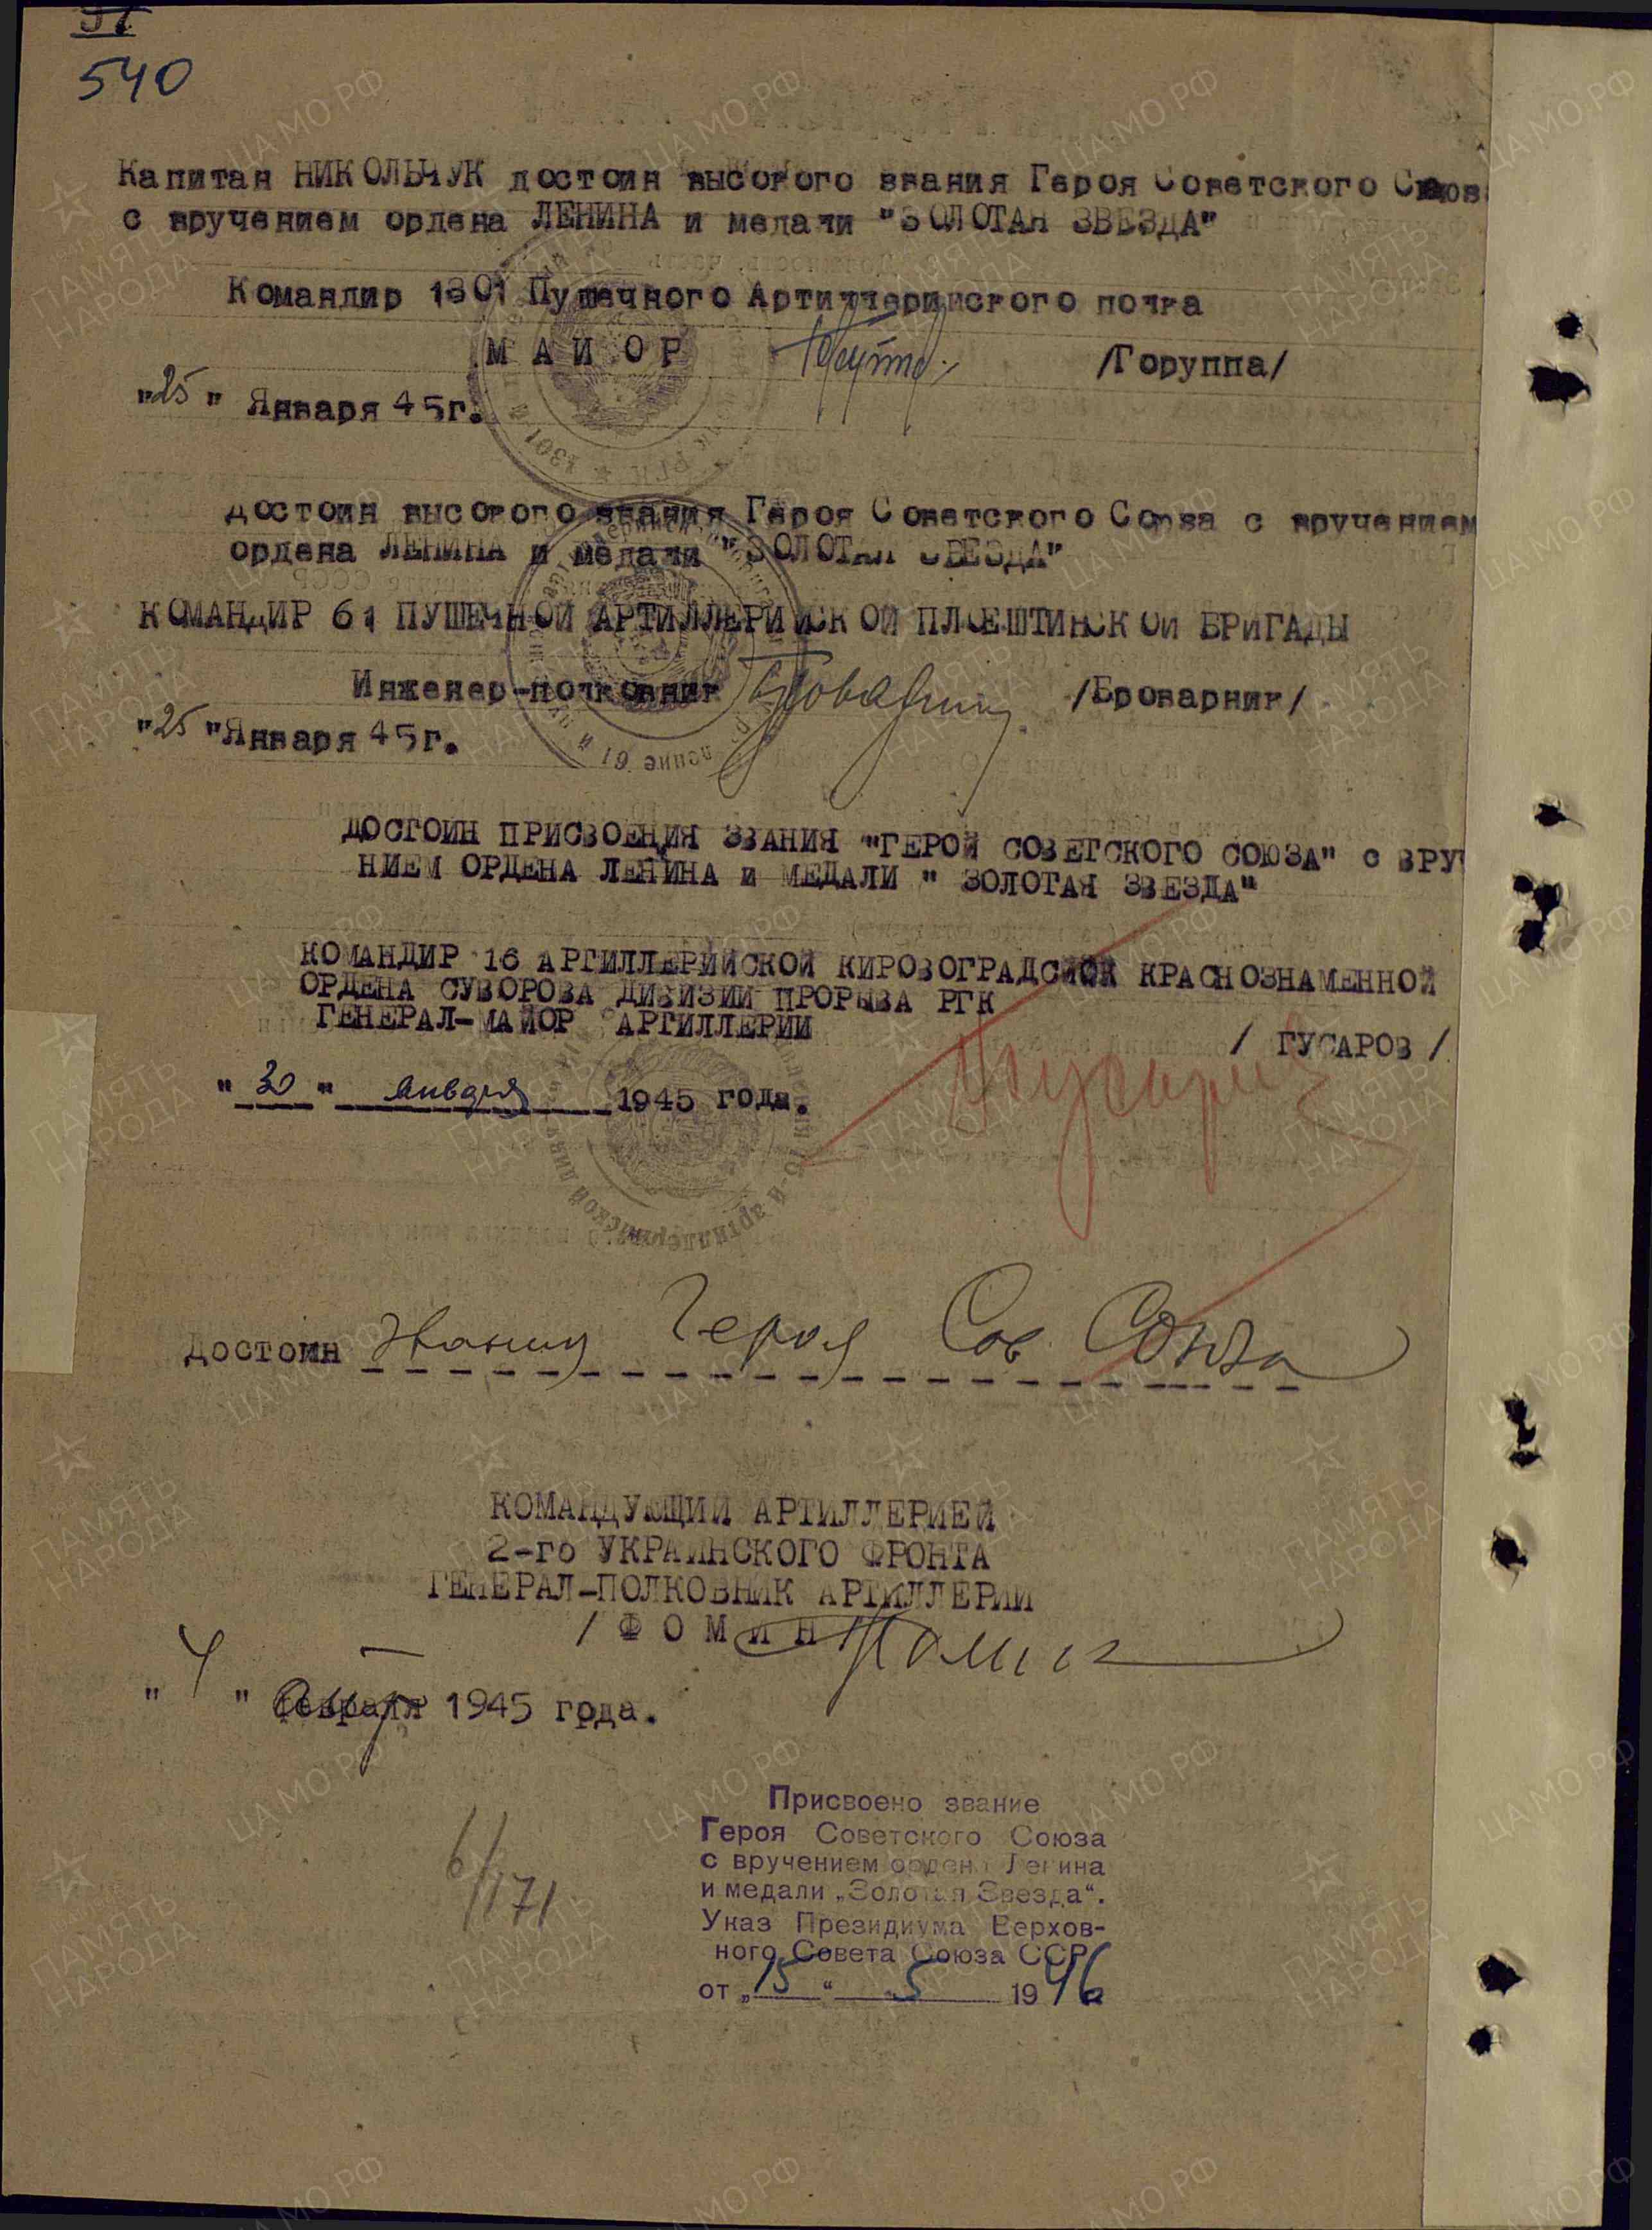 540
Капитан НИКОЛЬЧУК достоин высокого звания Героя Советского Союз
с вручением ордена ЛЕНИНА и медали "ЗОЛОТАЯ ЗВЕЗДА"
Командир 1301 Пушечного Артиллерийского полка
МАЙОР /Горуппа/
"25" Января 45г.
достоин высокого звания Героя Советского Союза с вручением
ордена ЛЕНИНА и медали "ЗОЛОТАЯ ЗВЕЗДА"
КОМАНДИР 61 ПУШЕЧНОЙ АРТИЛЛЕРИЙСКОЙ ПЛОЕШТИНСКОЙ БРИГАДЫ
Инженер-полковник /Броварник/
"25" Января 45г.
ДОСТОИН ПРИСВОЕНИЯ ЗВАНИЯ "ГЕРОЙ СОВЕТСКОГО СОЮЗА" с ВРУЧ
НИЕМ ОРДЕНА ЛЕНИНА и МЕДАЛИ " ЗОЛОТАЯ ЗВЕЗДА"
КОМАНДИР 16 АРТИЛЛЕРИЙСКОЙ КИРОВОГРАДСКОЙ КРАСНОЗНАМЕННОЙ
ОРДЕНА СУВОРОВА ДИВИЗИИ ПРОРЫВА РГК
ГЕНЕРАЛ-МАЙОР АРТИЛЛЕРИИ
/ ГУСАРОВ /
"30" января 1945 года.
Достоин звания Героя Сов. Союза
КОМАНДУЮЩИЙ АРТИЛЛЕРИЕЙ
2-го УКРАИНСКОГО ФРОНТА
ГЕНЕРАЛ-ПОЛКОВНИК АРТИЛЛЕРИИ
/ФОМИН/ Фомин
"4" февраля 1945 года.
6/171
Присвоено звание
Героя Советского Союза
с вручением ордена Ленина
и медали „Золотая Звезда“.
Указ Президиума Верхов-
ного Совета Союза ССР
от „15“ 5 1946